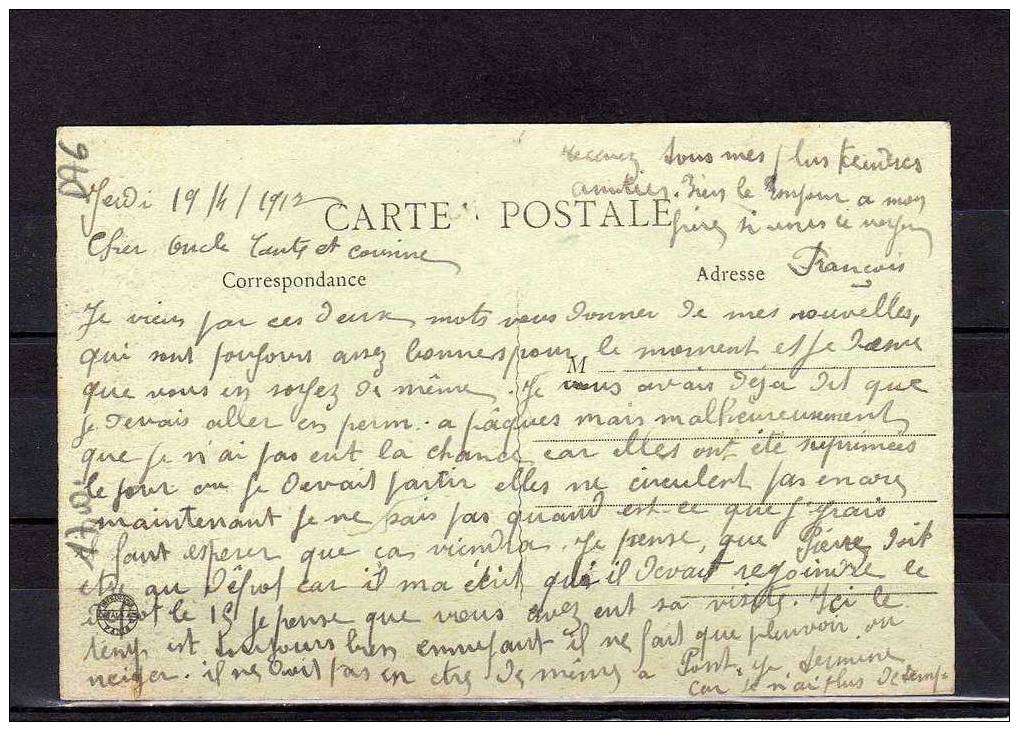 D96
Jeudi 19/4/1917
CARTE POSTALE
Cher Oncle Tante et cousine
Correspondance
Adresse
M
Je viens par ces deux mots vous donner de mes nouvelles,
qui sont toujours assez bonnes pour le moment et je desire
que vous en soyez de même. Je vous avais déja dit que
je devais aller en perm. a pâques mais malheureusement
que je n'ai pas eut la chance car elles ont été suprimées
le jour ou je devait partir elles ne circulent pas encore
maintenant je ne sais pas quand est-ce que j'y
faut esperer que ca viendra. Je pense, que Pierre doit
etre au Dépot car il ma écrit qu'il devait rejoindre le
depot le 15 je pense que vous avez eut sa visite. Ici le
temps est toujours bien ennuyant il ne fait que pleuvoir ou
neiger. il ne doit pas en etre de même a Pont. je termine
car je n'ai plus de temps
recevez tous mes plus tendres
amities. Bien le bonjour a mon
frère si vous le voyez
François